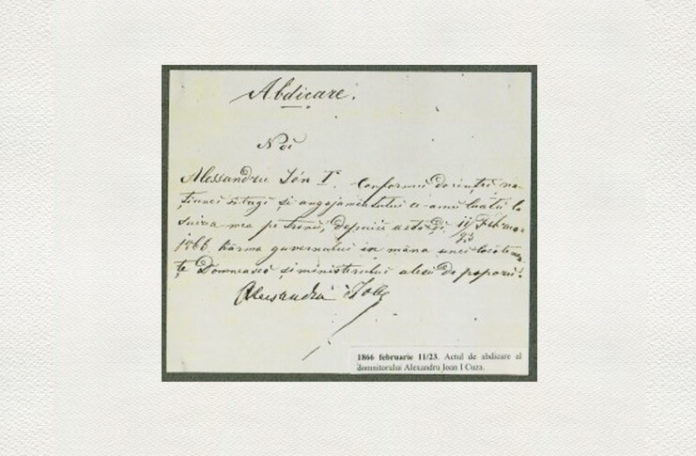 Abdicare.
Noi
Alessandru Ión I. Conformŭ dorinței na-
țiunei întregi și angajamentului ce amŭ luatŭ la
suirea mea pe Tronŭ, depuiŭ astă-dĭ 11/23 Februarie
1866 kârma guvernului în mâna unei locotenen-
țe Domnescĭ și ministerului alesŭ de poporŭ.
Alessandru Ión
1866 februarie 11/23. Actul de abdicare al
domnitorului Alexandru Ioan I Cuza.